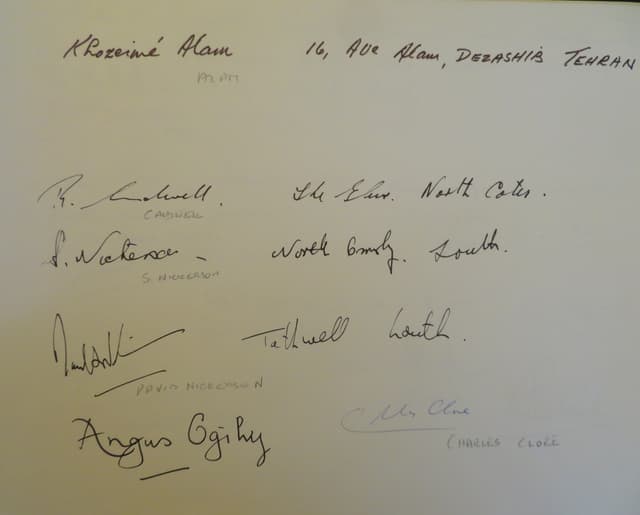 Khozeimé Alam 16, Ave Alam, DEZASHIB TEHRAN
ALAM
R. Caudwell. The Elms. North Cotes.
CAUDWELL
S. Nickerson - North Ormsby. Louth.
S. NICKERSON
Tathwell Louth.
DAVID NICKERSON
Angus Ogilvy
Clore
CHARLES CLORE